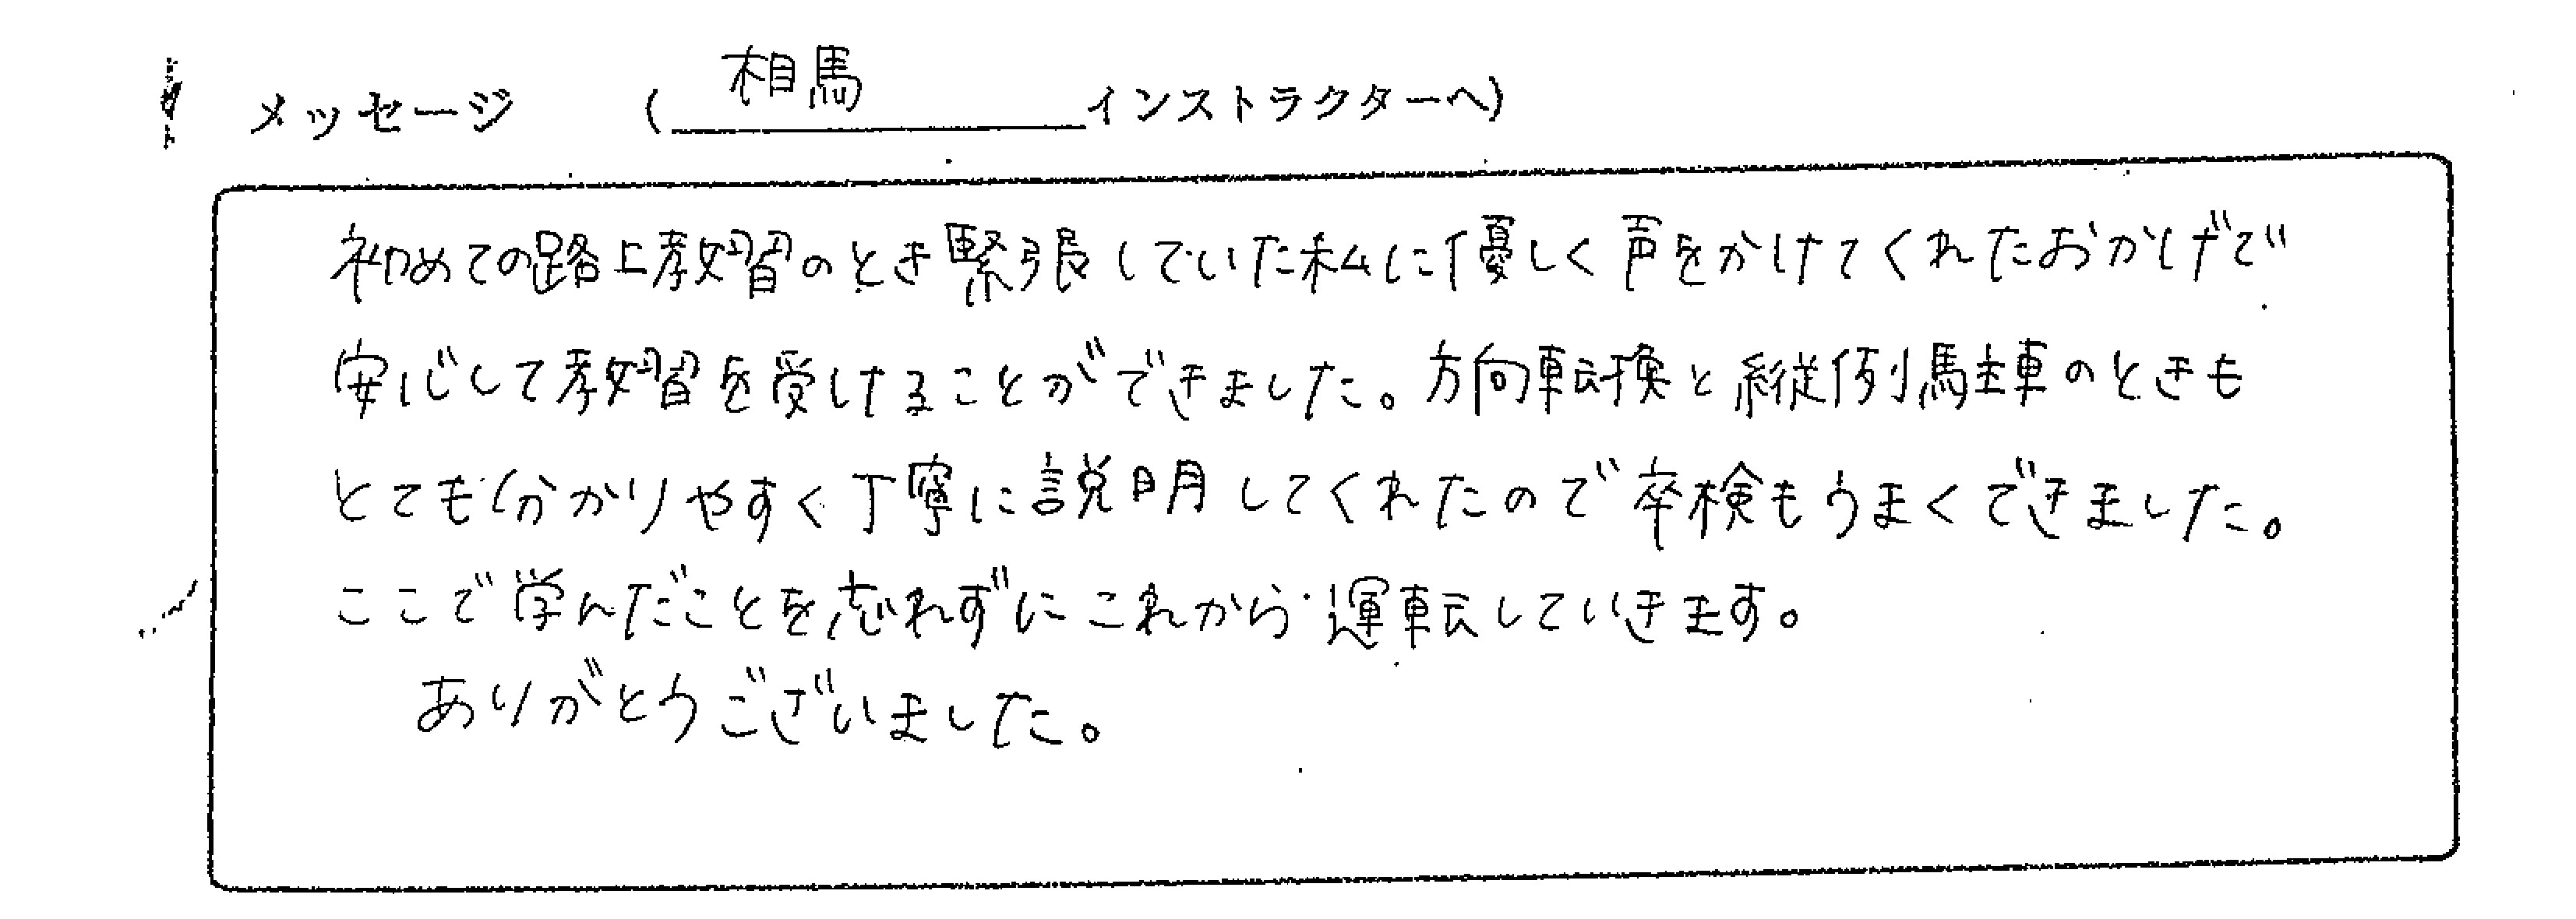 メッセージ (相馬インストラクターへ)
初めての路上教習のとき緊張していた私に優しく声をかけてくれたおかげで
安心して教習を受けることができました。方向転換と縦例駐車のときも
とても分かりやすく丁寧に説明してくれたので卒検もうまくできました。
ここで学んだことを忘れずにこれから運転していきます。
ありがとうございました。